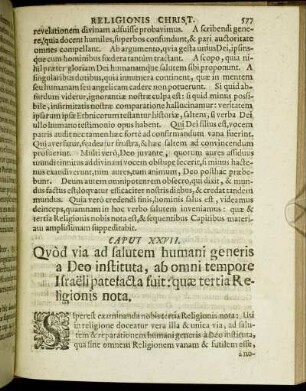 RELIGIONIS CHRIST. 577
revelationem divinam adfuisse probavimus. A scribendi gene-
re, quia docent humiles, superbos confundunt, & pari auctoritate
omnes compellant. Ab argumento, quia gesta unius Dei, ipsius-
que cum hominibus fœdera tantum tractant. A scopo, quia ni-
hil præter gloriam Dei humanamque salutem sibi proponunt. A
singularibus dotibus, quia innumera continent, quæ in mentem
seu humanam seu angelicam cadere non potuerunt. Si quid ab-
surdum videtur, ignorantiæ nostræ culpa est: si quid minus possi-
bile, infirmitatis nostræ comparatione hallucinamur: veritatem
ipsarum ipsæ Ethnicorum testantur historiæ, saltem, si verba Dei
ullo humano testimonio opus habent. Qui Dei filius est, vocem
patris audit nec tamen hæc forte ad consirmandum vana fuerint.
Qui aversatur, fœdatur & frustra, saltem ad convincendum
proderunt. Misit verò, Deo juvante, quorum aures assiduus
mundi tinnitus
exaudiverunt, nos salutem, animam, Deo possidendam præ-
buerint. Deum autem omnipotentem obsecro, qui dixit, & mun-
dus factus est, loquatur efficaciter nostris dictis, & credat tandem
mundus. Quia verò credendi finis, hominis salus est, videamus
deinceps, quamnam in hoc verbo salutem inveniamus: quæ & ter-
tia Religionis nobis nota est, & sequentibus Capitibus materiam
amplissimam suppeditabit.
CAPUT XXVII.
Quòd via ad salutem humani generis
a Deo instituta, ab omni tempore
Israëli patefacta fuit: quæ tertia Re-
ligionis nota.
Superest examinanda nobis tertia Religionis nota: Uti
in religione doceatur vera illa & unica via, ad salu-
tem & reparationem humani generis à Deo instituta,
qua sine omnem Religionem vanam & futilem esse,
ino-